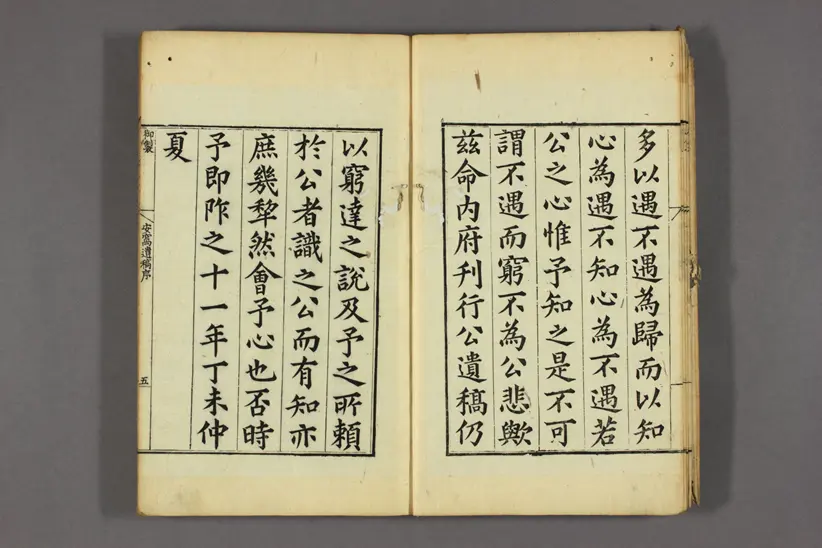 多以遇不遇為歸而以知
心為遇不知心為不遇若
公之心惟予知之是不可
謂不遇而窮不為公悲歟
茲命內府刊行公遺稿仍
以窮達之說及予之所賴
於公者識之公而有知亦
庶幾犂然會予心也否時
予即阼之十一年丁未仲
夏
御製
安窩遺稿序
五